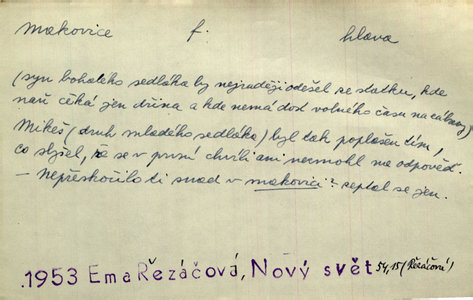 makovice f. hlava
(syn bohatého sedláka by nejraději odešel ze statku, kde
naň čeká jen dřina a kde nemá dost volného času na zábavy)
Mikeš (druh mladého sedláka) byl tak poplašen tím,
co slyšel, že se v první chvíli ani nezmohl na odpověď.
– Nepřeskočilo ti snad v makovici? zeptal se jen.
.1953 Ema Řezáčová, Nový svět 54,15 (Řezáčová)